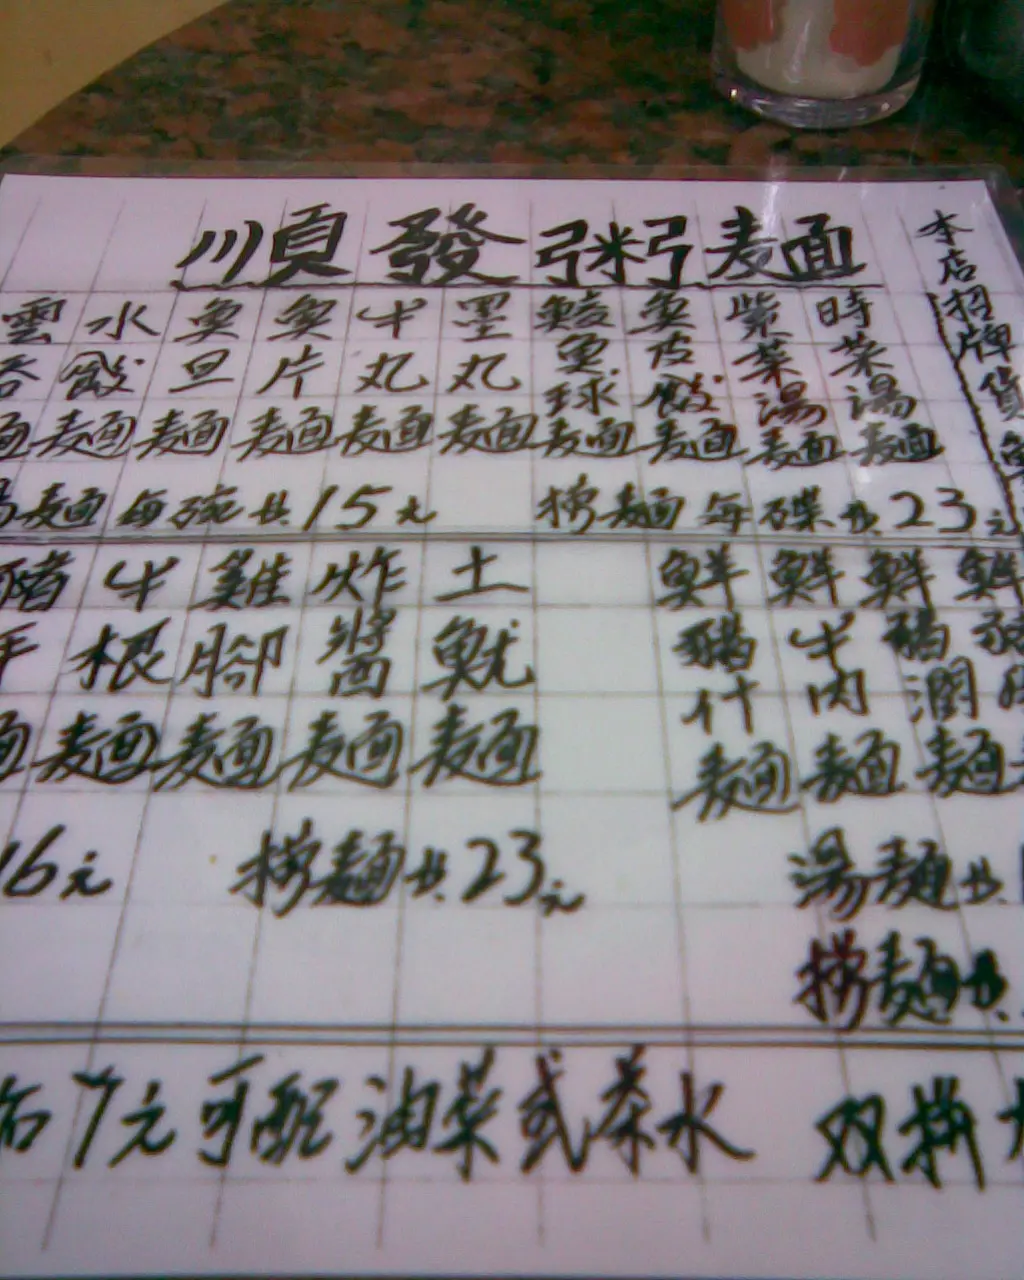 順發粥麵
本店招牌貨
雲吞麵
水餃麵
魚旦麵
魚片麵
牛丸麵
墨丸麵
鯪魚球麵
魚皮餃麵
紫菜湯麵
時菜湯麵
湯麵每碗共15元
撈麵每碟共23元
豬手麵
牛根麵
雞腳麵
炸醬麵
土魷麵
鮮豬什麵
鮮牛肉麵
鮮豬潤麵
鮮豬
16元
撈麵共23元
湯麵共
撈麵共
加7元可配油菜或茶水
双拼